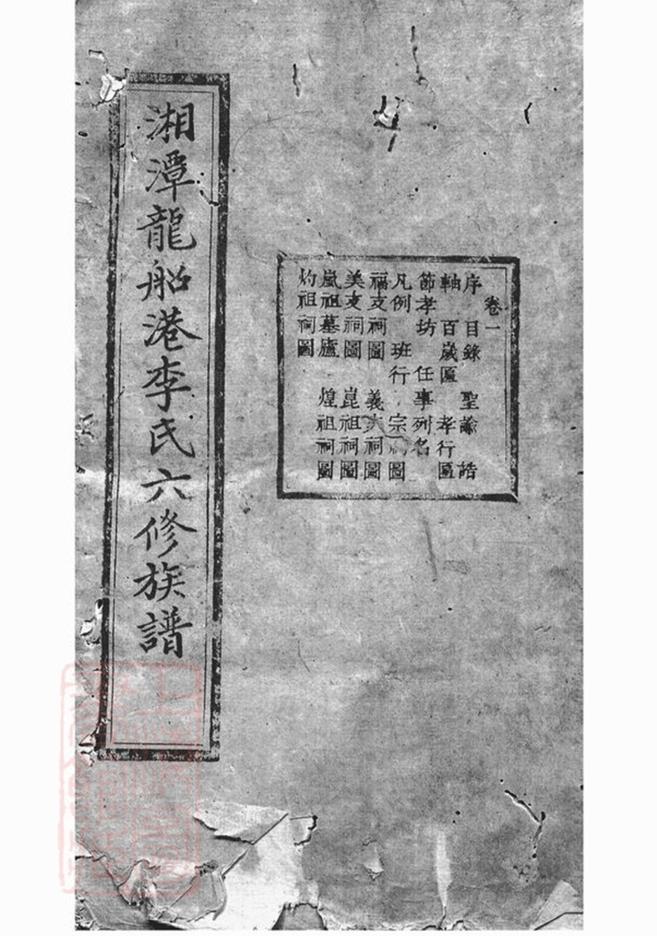 卷一
序 目錄 聖諭 誥
軸 百歲匾 孝行匾
節孝坊 任事列名
凡例 班行 宗祠圖
福支祠圖 義支祠圖
美支祠圖 崑祖祠圖
嵐祖墓廬 煌祖祠圖
灼祖祠圖
湘潭龍船港李氏六修族譜